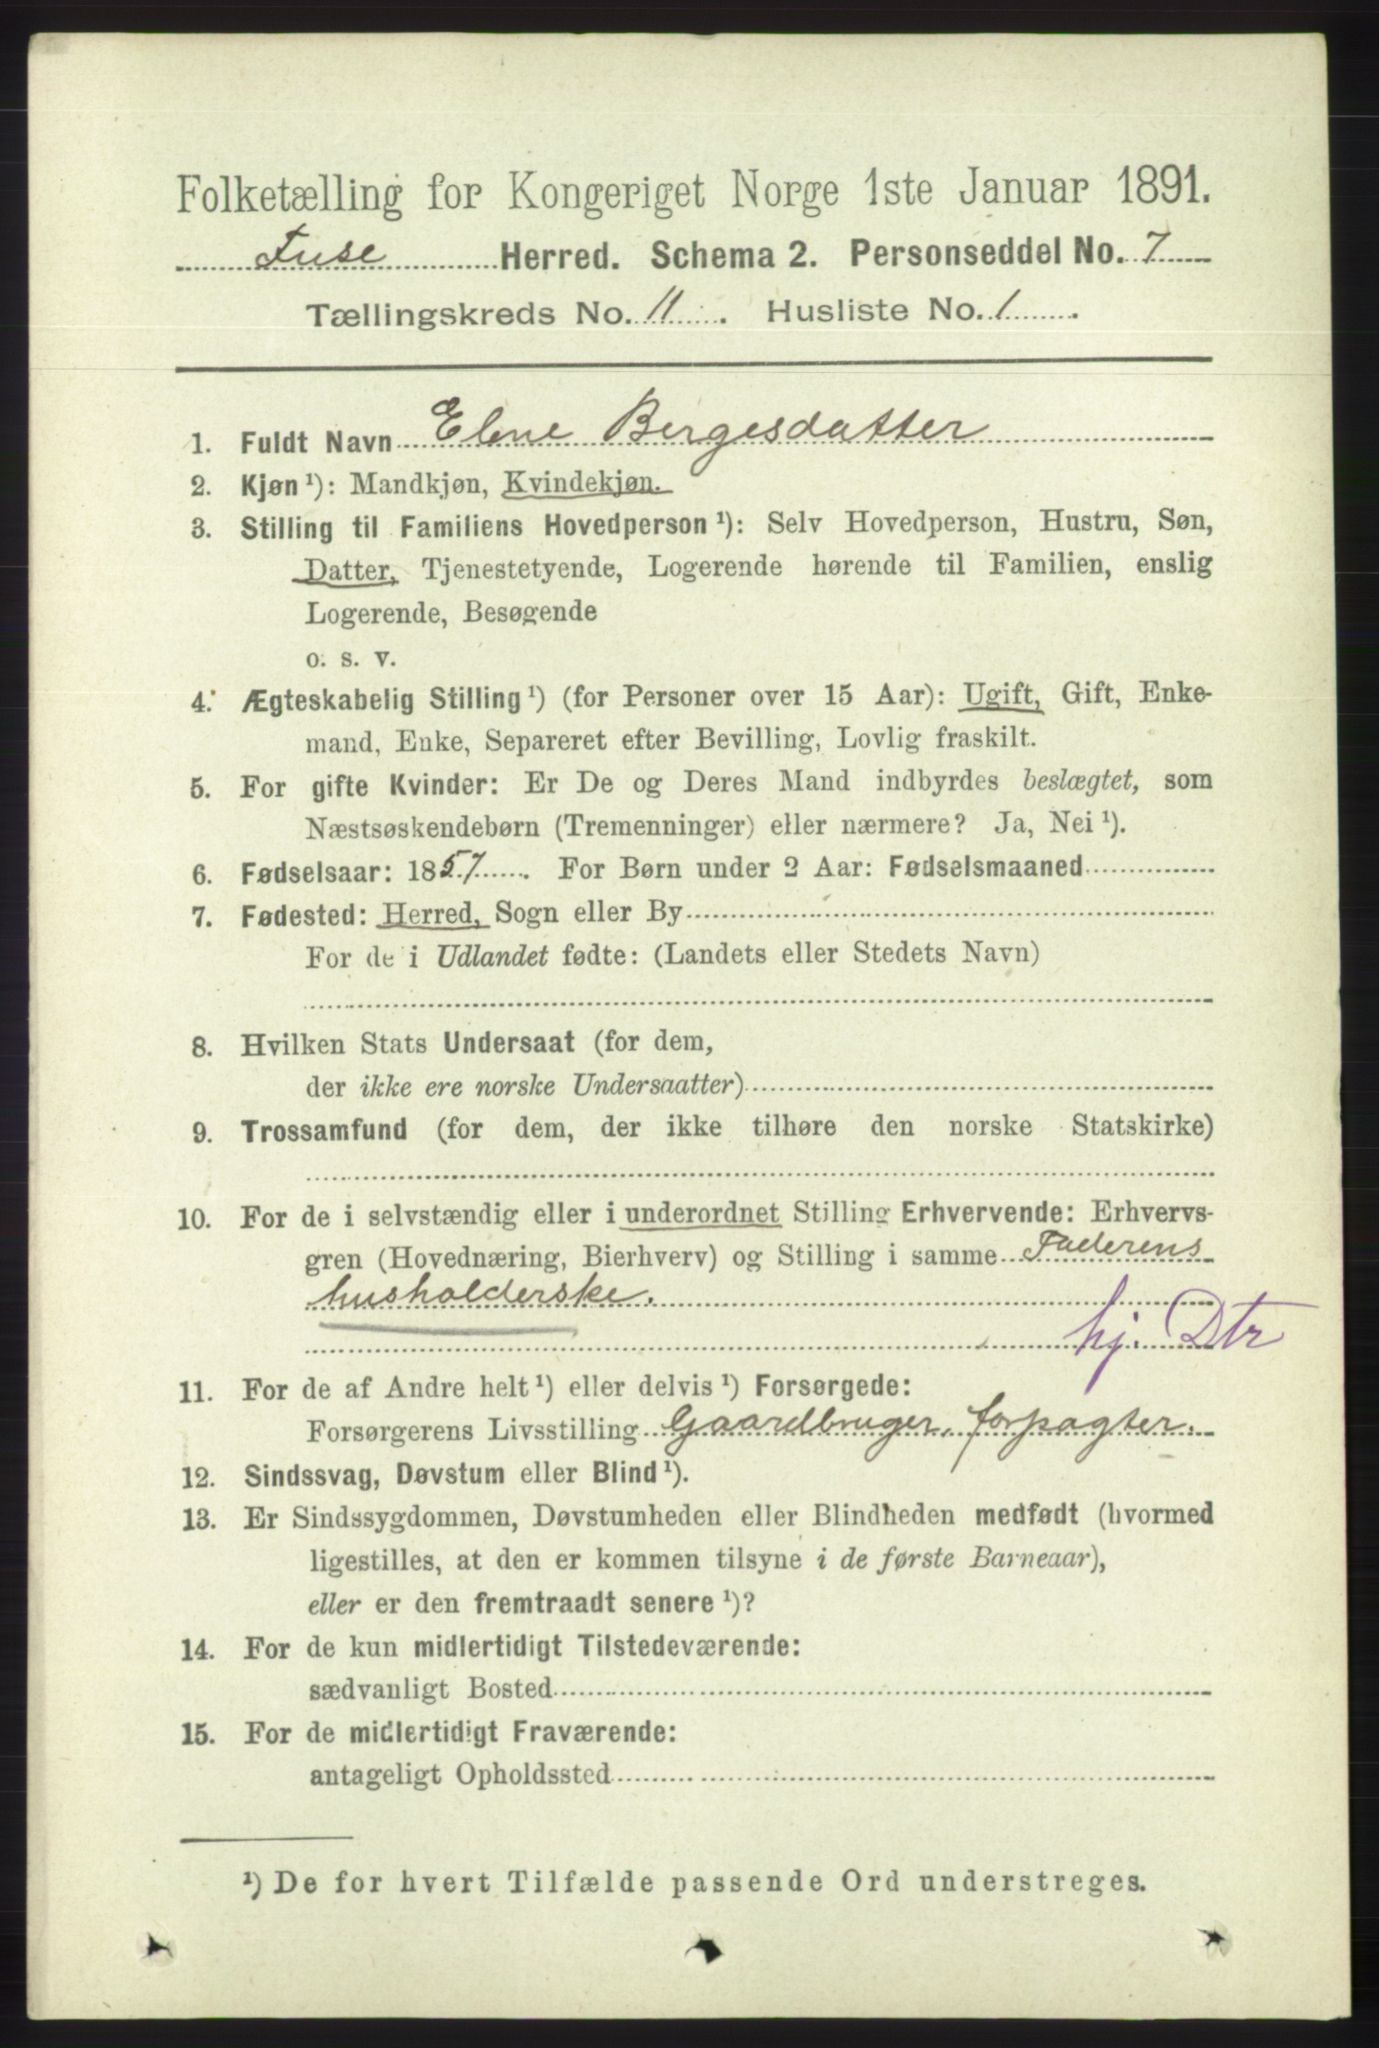 Folketælling for Kongeriget Norge 1ste Januar 1891.
Fuse Herred. Schema 2. Personseddel No. 7
Tællingskreds No. 11. Husliste No. 1.
1. Fuldt Navn Elene Bergesdatter
2. Kjøn ¹): Mandkjøn, Kvindekjøn.
3. Stilling til Familiens Hovedperson ¹): Selv Hovedperson, Hustru, Søn,
Datter, Tjenestetyende, Logerende hørende til Familien, enslig
Logerende, Besøgende
o. s. v.
4. Ægteskabelig Stilling ¹) (for Personer over 15 Aar): Ugift, Gift, Enke-
mand, Enke, Separeret efter Bevilling, Lovlig fraskilt.
5. For gifte Kvinder: Er De og Deres Mand indbyrdes beslægtet, som
Næstsøskendebørn (Tremenninger) eller nærmere? Ja, Nei ¹).
6. Fødselsaar: 1857. For Børn under 2 Aar: Fødselsmaaned
7. Fødested: Herred, Sogn eller By
For de i Udlandet fødte: (Landets eller Stedets Navn)
8. Hvilken Stats Undersaat (for dem,
der ikke ere norske Undersaatter)
9. Trossamfund (for dem, der ikke tilhøre den norske Statskirke)
10. For de i selvstændig eller i underordnet Stilling Erhvervende: Erhvervs-
gren (Hovednæring, Bierhverv) og Stilling i samme Faderens
husholderske.
hj. Dtr
11. For de af Andre helt ¹) eller delvis ¹) Forsørgede:
Forsørgerens Livsstilling Gaardbruger, forpagter.
12. Sindssvag, Døvstum eller Blind ¹).
13. Er Sindssygdommen, Døvstumheden eller Blindheden medfødt (hvormed
ligestilles, at den er kommen tilsyne i de første Barneaar),
eller er den fremtraadt senere ¹)?
14. For de kun midlertidigt Tilstedeværende:
sædvanligt Bosted
15. For de midlertidigt Fraværende:
antageligt Opholdssted
¹) De for hvert Tilfælde passende Ord understreges.